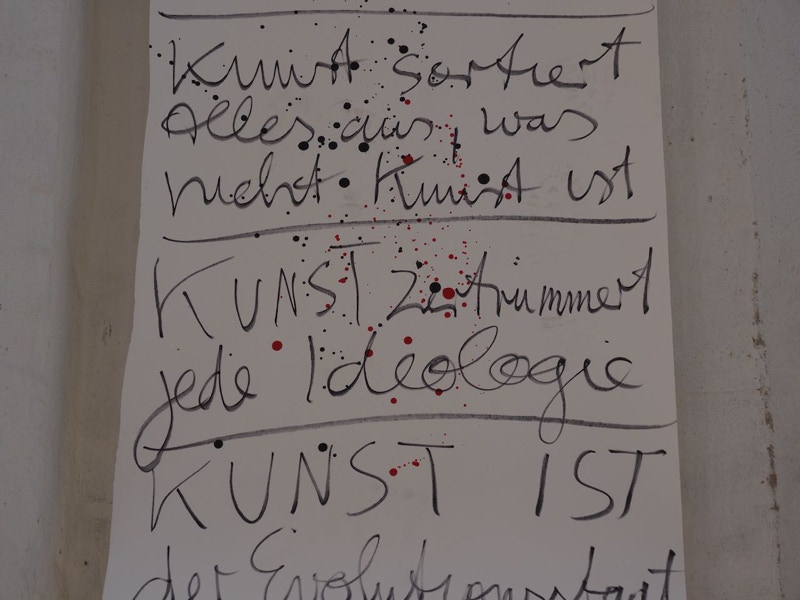 Kunst sortiert
Alles aus, was
nicht Kunst ist
KUNST zertrümmert
jede Ideologie
KUNST IST
der